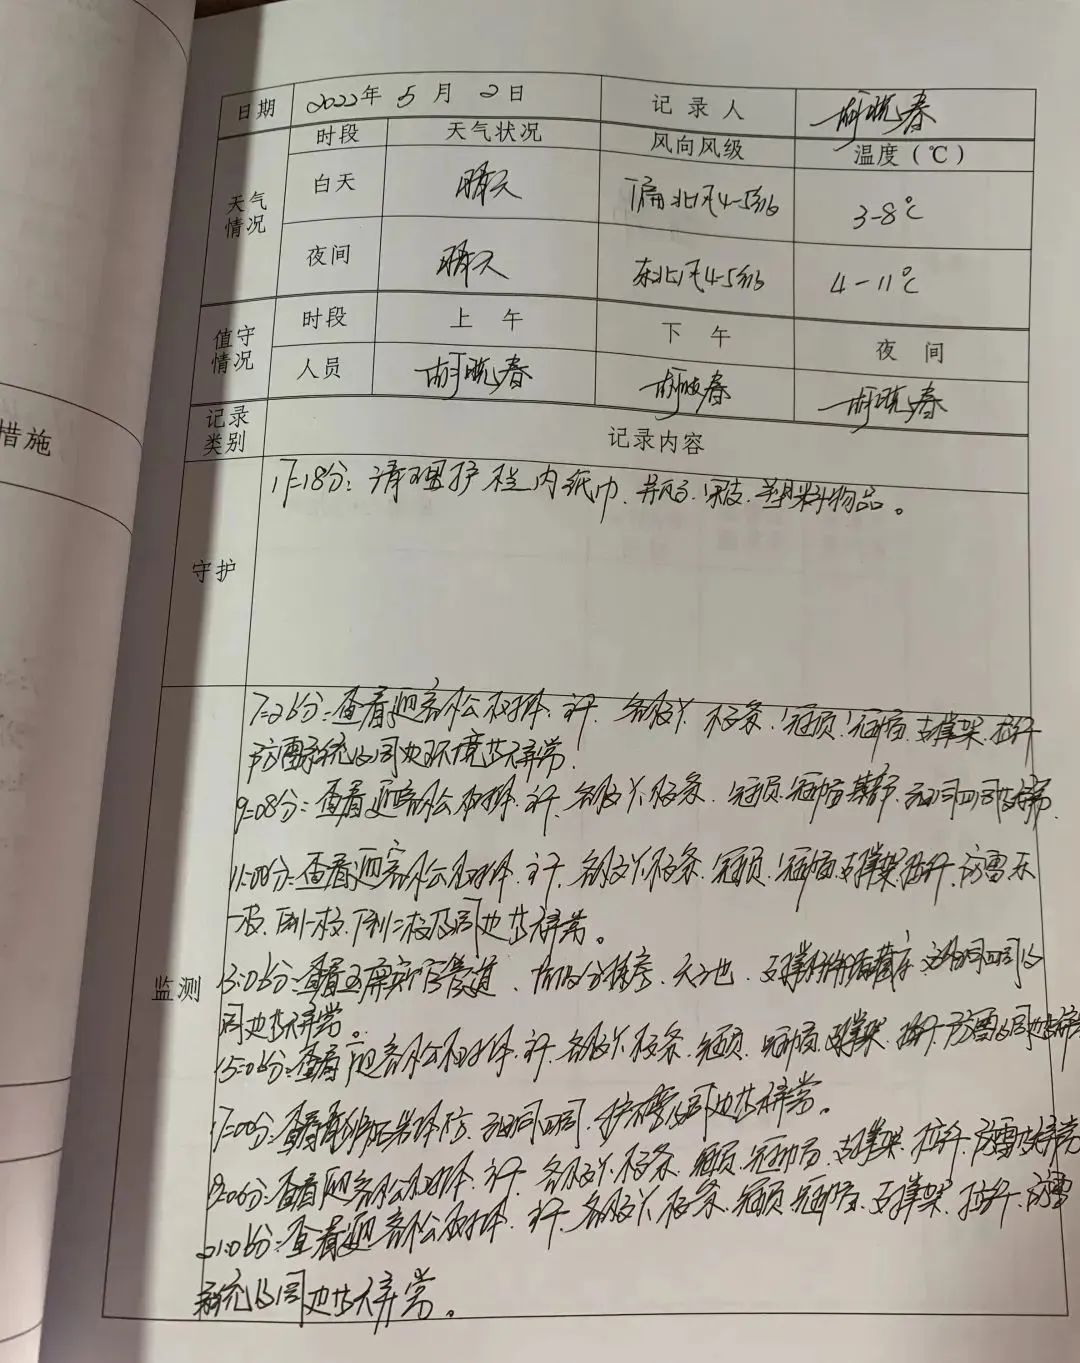 措施
日期 2022年 5 月 2日 记录人 胡晓春
天气情况 时段 天气状况 风向风级 温度(℃)
白天 晴天 偏北风4-5级 3-8℃
夜间 晴天 东北风4-5级 4-11℃
值守情况 时段 上午 下午 夜间
人员 胡晓春 胡晓春 胡晓春
记录类别 记录内容
守护 17:18分:清理护栏内纸巾、果皮、塑料物品。
监测
7:26分:查看迎客松树体、主干、各枝丫、枝条、冠顶、冠幅、支撑架、拉杆
防雷系统及周边环境皆无异常.
9:08分:查看迎客松树体、主干、各枝丫、枝条、冠顶、冠幅、基部、
11:06分:查看迎客松树体、主干、各枝丫、枝条、冠顶、冠幅、支撑架、拉杆、防雷
及周边皆无异常。
13:06分:查看 管道、
周边皆无异常。
15:06分:查看迎客松树体、主干、各枝丫、枝条、冠顶、冠幅、支撑架、拉杆、防雷及周边皆无异常
17:00分:查看 及周边皆无异常。
19:06分:查看迎客松树体、主干、各枝丫、枝条、冠顶、冠幅、支撑架、拉杆、防雷皆无异常
21:06分:查看迎客松树体、主干、各枝丫、枝条、冠顶、冠幅、支撑架、拉杆、防雷
系统及周边皆无异常。